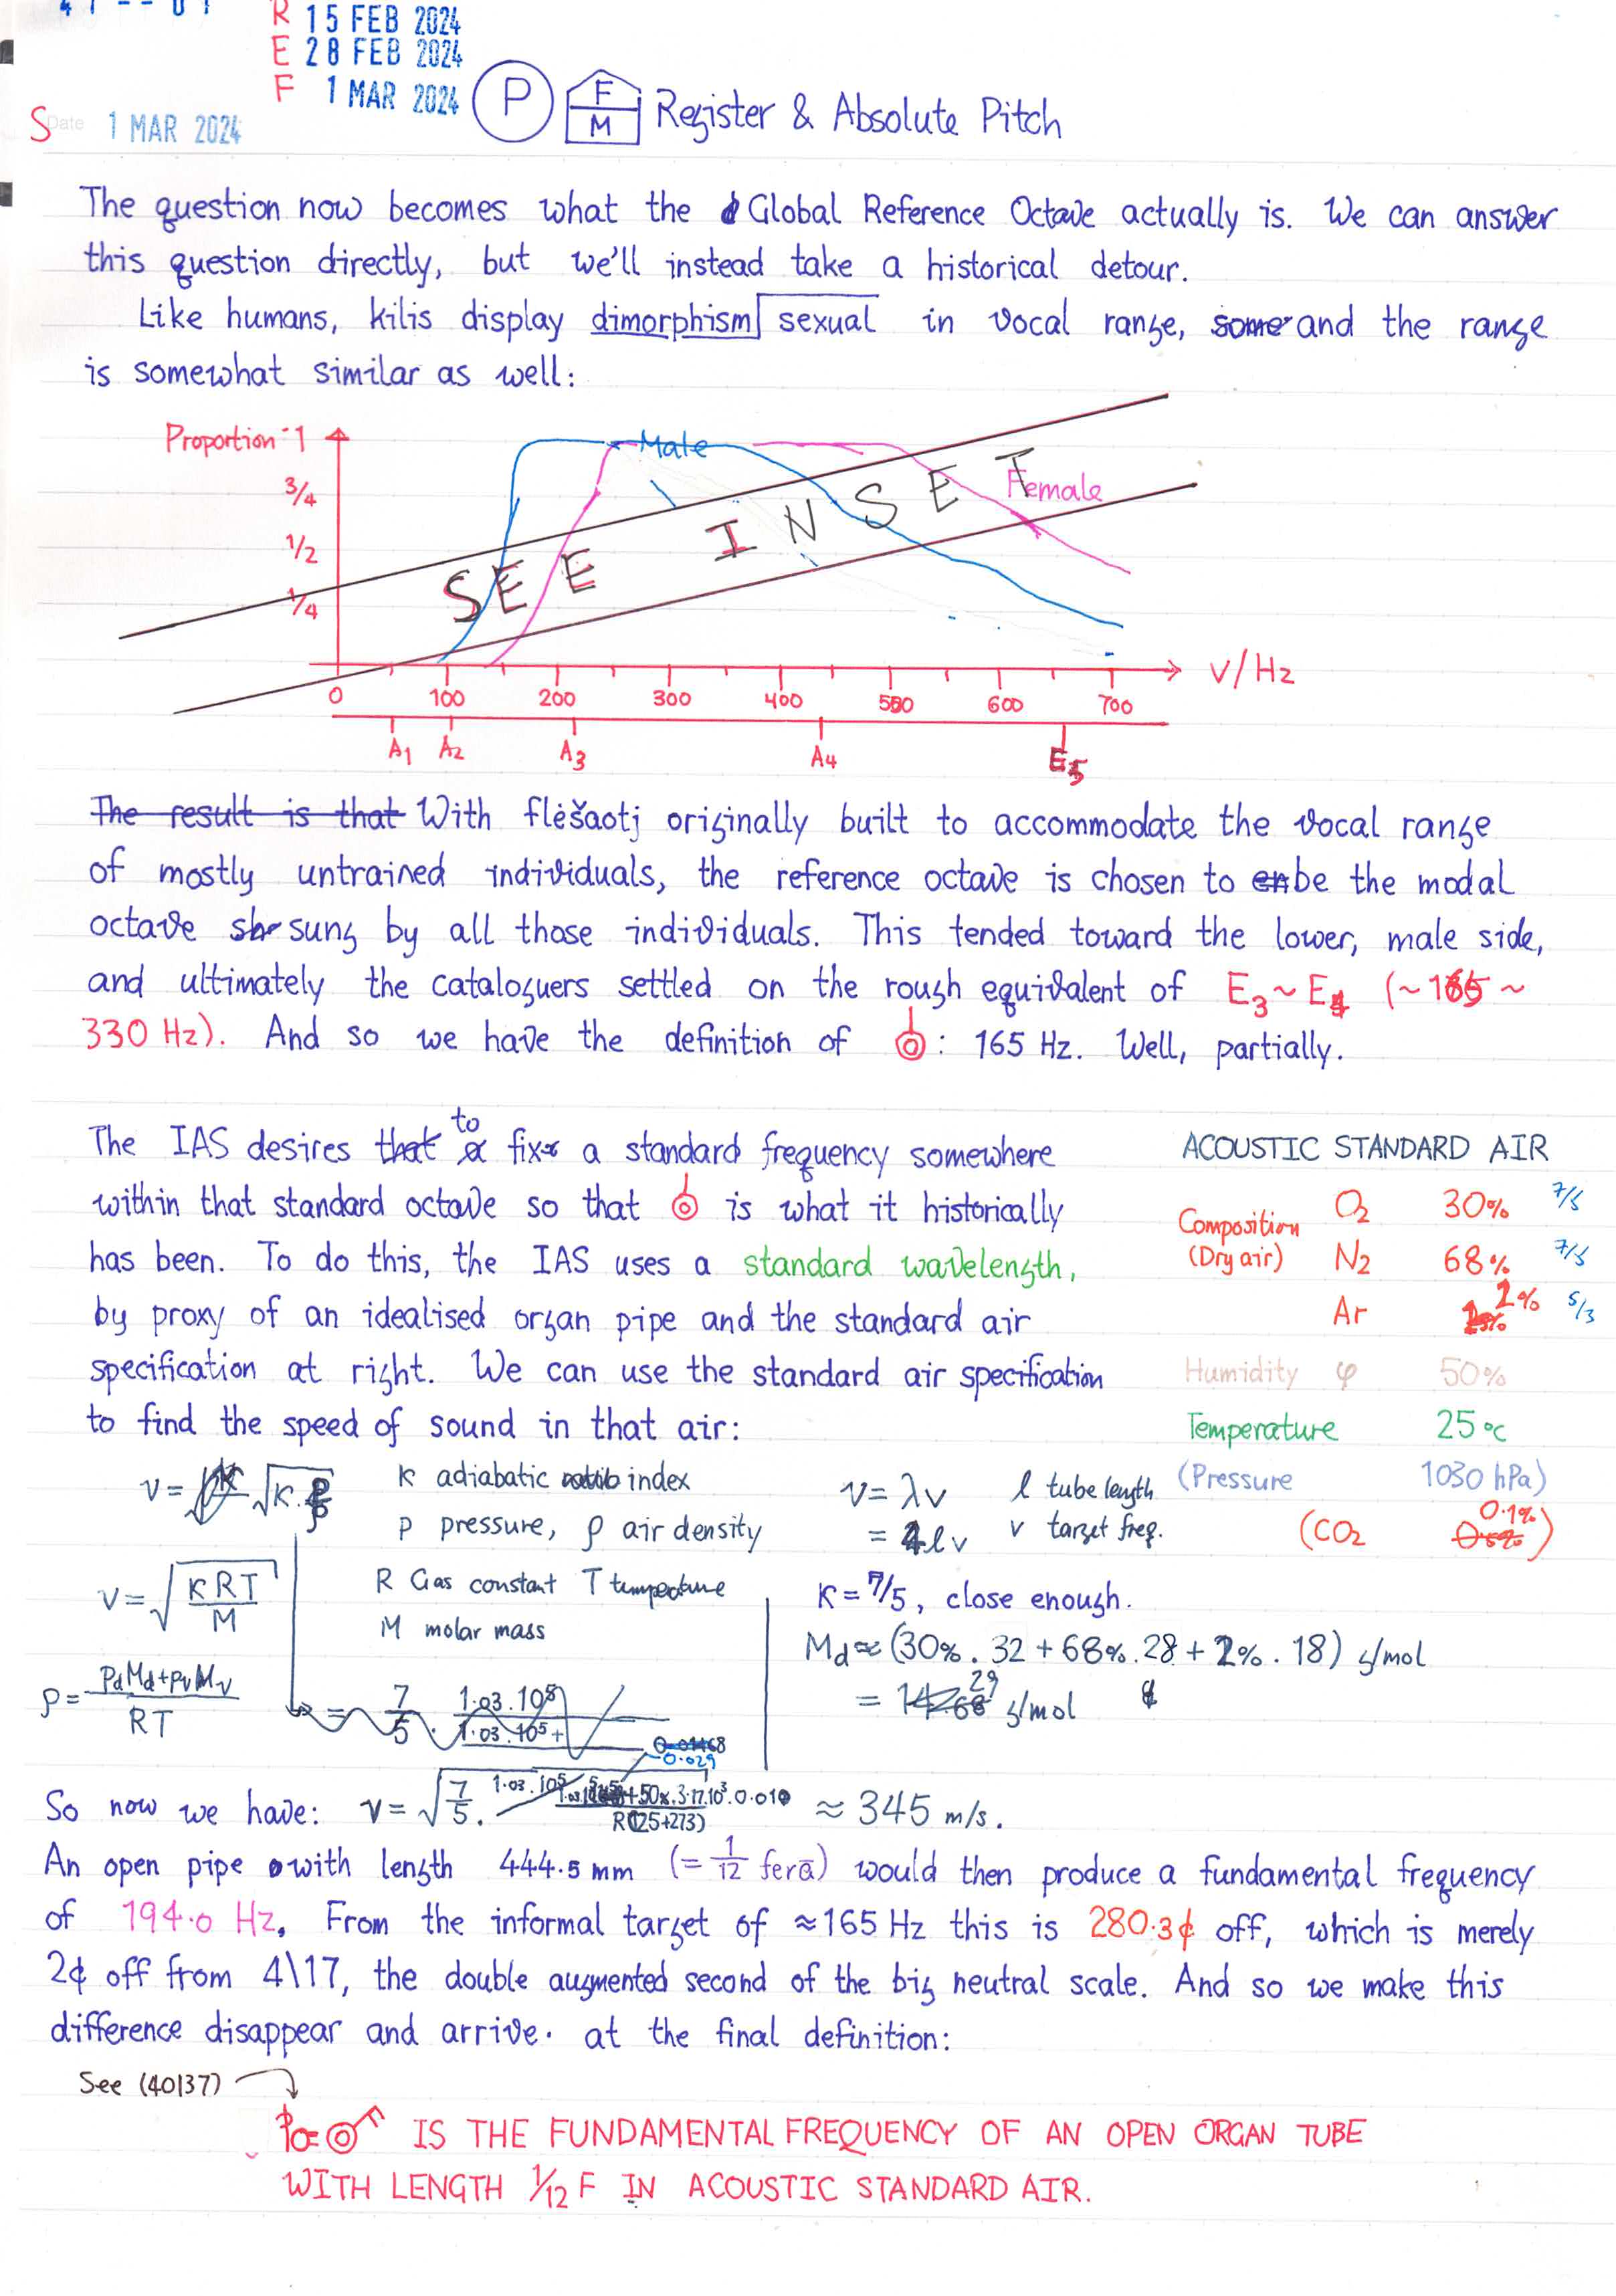 R 15 FEB 2024
E 28 FEB 2024
F 1 MAR 2024
S Date 1 MAR 2024
P F M Register & Absolute Pitch
The question now becomes what the Global Reference Octave actually is. We can answer
this question directly, but we'll instead take a historical detour.
Like humans, kilis display dimorphism sexual in vocal range, some and the range
is somewhat similar as well:
Proportion 1
Male
Female
3/4
1/2
1/4
SEE INSET
ν/Hz
0 100 200 300 400 500 600 700
A1 A2 A3 A4 E5
The result is that With flėšaotj originally built to accommodate the vocal range
of mostly untrained individuals, the reference octave is chosen to be the modal
octave sung by all those individuals. This tended toward the lower, male side,
and ultimately the cataloguers settled on the rough equivalent of E3~E4 (~165~
330 Hz). And so we have the definition of : 165 Hz. Well, partially.
The IAS desires that to fix a standard frequency somewhere
within that standard octave so that is what it historically
has been. To do this, the IAS uses a standard wavelength,
by proxy of an idealised organ pipe and the standard air
specification at right. We can use the standard air specification
to find the speed of sound in that air:
ACOUSTIC STANDARD AIR
Composition (Dry air)
O2 30% 7/5
N2 68% 7/5
Ar 2% 5/3
Humidity φ 50%
Temperature 25°C
(Pressure 1030 hPa)
(CO2 0.1%)
v = √K.p/ρ
K adiabatic index
p pressure, ρ air density
v = λν
= 4lν
l tube length
ν target freq.
v = √KRT/M
R Gas constant T temperature
M molar mass
K = 7/5, close enough.
Md ≈ (30%. 32 + 68%. 28 + 2%. 18) g/mol
= 29 g/mol
ρ = PdMd+PvMv/RT
= 7/5 . 1.03.10⁵
1.03.10⁵+
0.029
So now we have: v = √7/5. 1.03.10⁵ +50%.3.17.10³.0.018 R(25+273) ≈ 345 m/s.
An open pipe with length 444.5 mm (= 1/12 ferā) would then produce a fundamental frequency
of 194.0 Hz. From the informal target of ≈165 Hz this is 280.3¢ off, which is merely
2¢ off from 4\17, the double augmented second of the big neutral scale. And so we make this
difference disappear and arrive. at the final definition:
See (40137)
IS THE FUNDAMENTAL FREQUENCY OF AN OPEN ORGAN TUBE
WITH LENGTH 1/12 F IN ACOUSTIC STANDARD AIR.